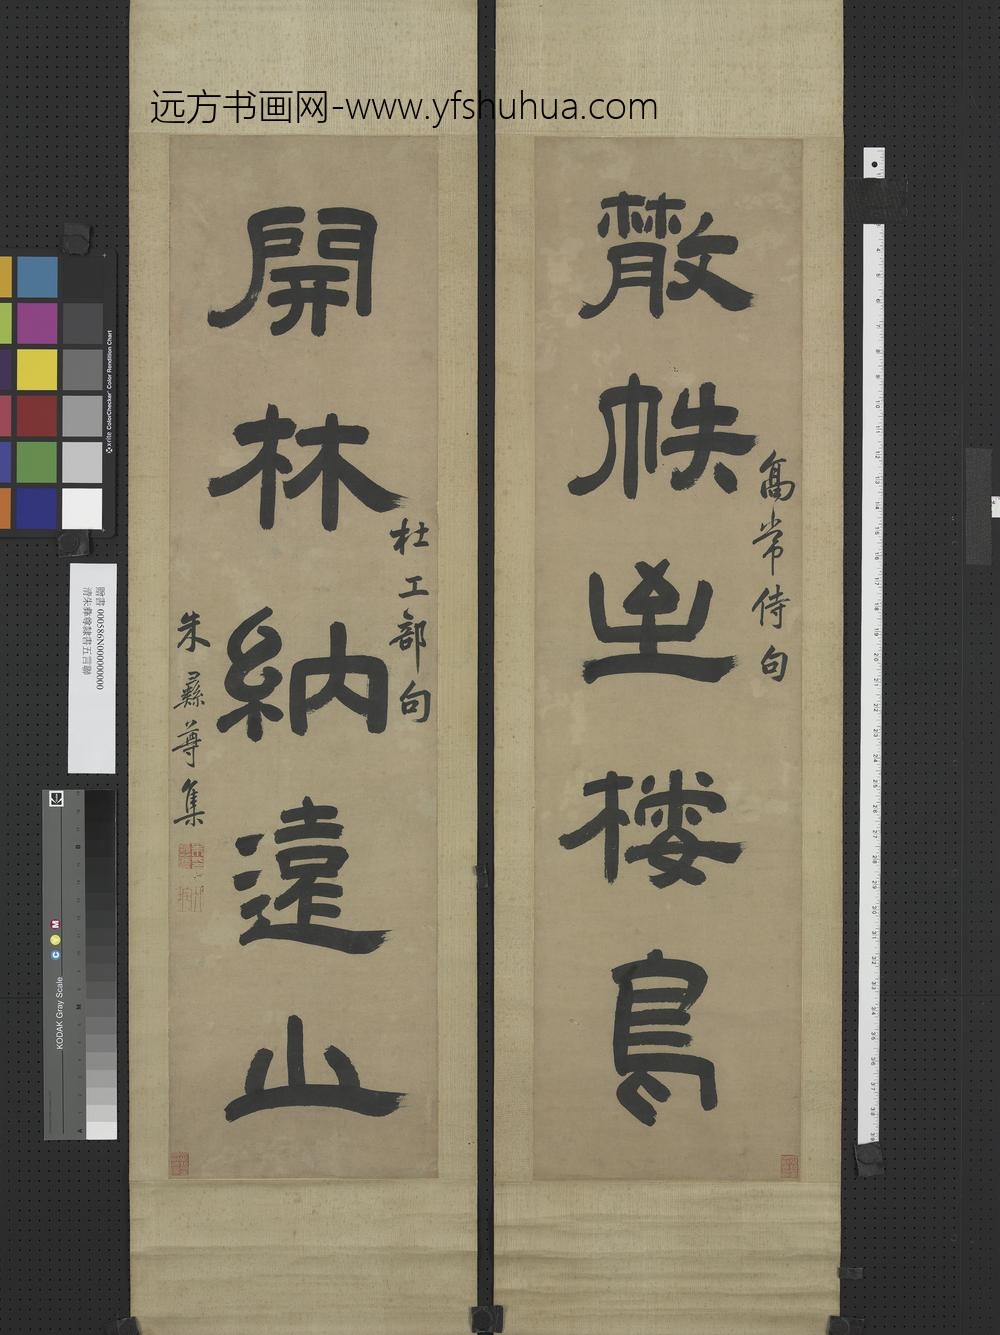 远方书画网-www.yfshuhua.com
散帙至棲鳥
高常侍句
開林納遠山
杜工部句
朱彝尊集
贈書 000586N000000000
清朱彝尊隸書五言聯
x·rite ColorChecker Color Rendition Chart
KODAK Gray Scale
C
Y
M